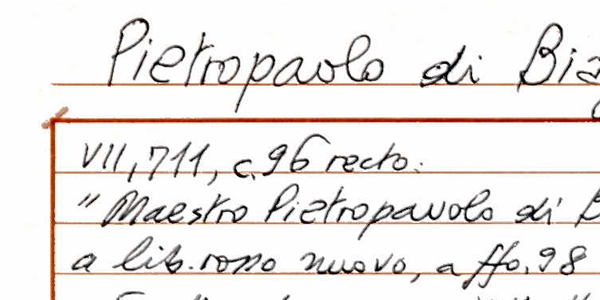 Pietropavolo di Bia
VII, 711, c. 96 recto:
"Maestro Pietropavolo di B
a lib. rosso nuovo, a ffo. 98